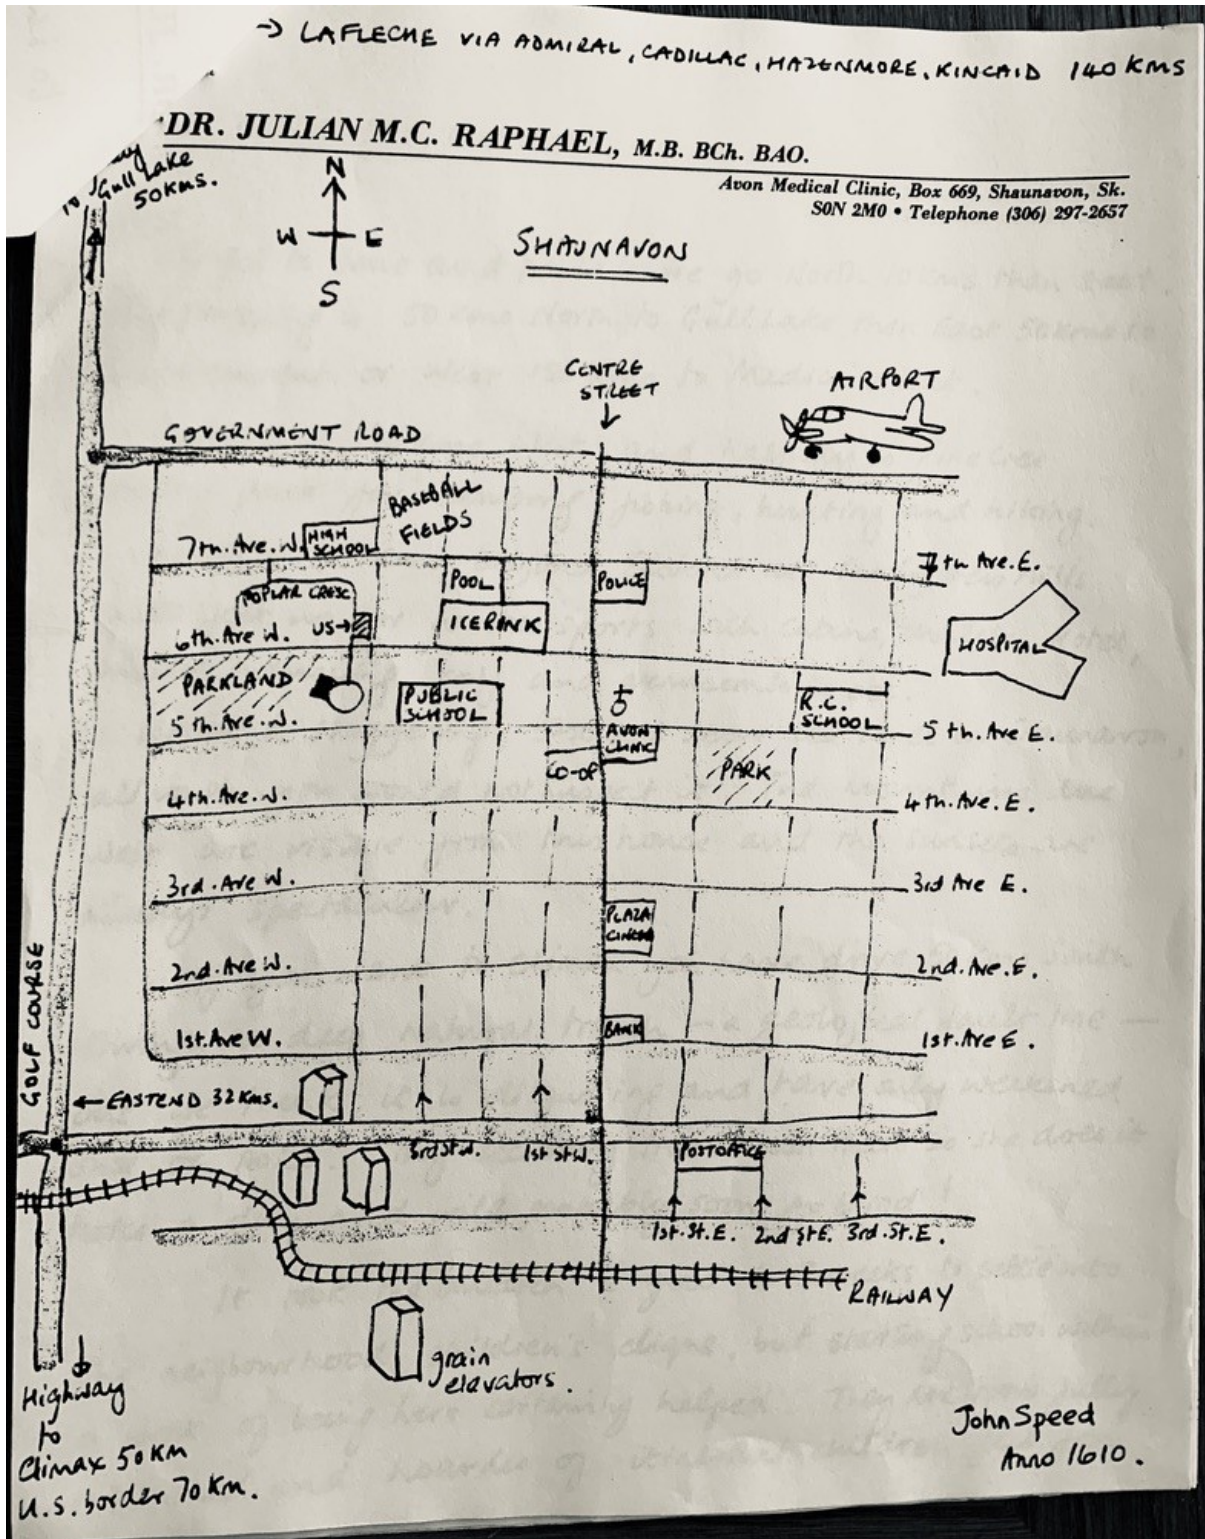 → LAFLECHE VIA ADMIRAL, CADILLAC, HAZENMORE, KINCAID 140 KMS
DR. JULIAN M.C. RAPHAEL, M.B. BCh. BAO.
Avon Medical Clinic, Box 669, Shaunavon, Sk.
S0N 2M0 • Telephone (306) 297-2657
Gull Lake
50 Kms.
N
W E
S
SHAUNAVON
CENTRE
STREET
AIRPORT
GOVERNMENT ROAD
BASEBALL
FIELDS
7th. Ave. W.
HIGH
SCHOOL
7th Ave. E.
POPLAR CRESC
POOL
POLICE
6th. Ave W.
US→
ICERINK
HOSPITAL
PARKLAND
PUBLIC
SCHOOL
R.C.
SCHOOL
5th. Ave. W.
AVON
CLINIC
5th. Ave E.
CO-OP
PARK
4th. Ave. W.
4th. Ave. E.
3rd. Ave W.
3rd Ave E.
PLAZA
CINEMA
2nd. Ave W.
2nd. Ave. E.
GOLF COURSE
1st. Ave W.
BANK
1st. Ave E.
← EASTEND 32 Kms.
3rd St W.
1st St W.
POST OFFICE
1st. St. E.
2nd St E.
3rd. St. E.
RAILWAY
grain
elevators.
Highway
to
Climax 50 KM
U.S. border 70 KM.
John Speed
Anno 1610.